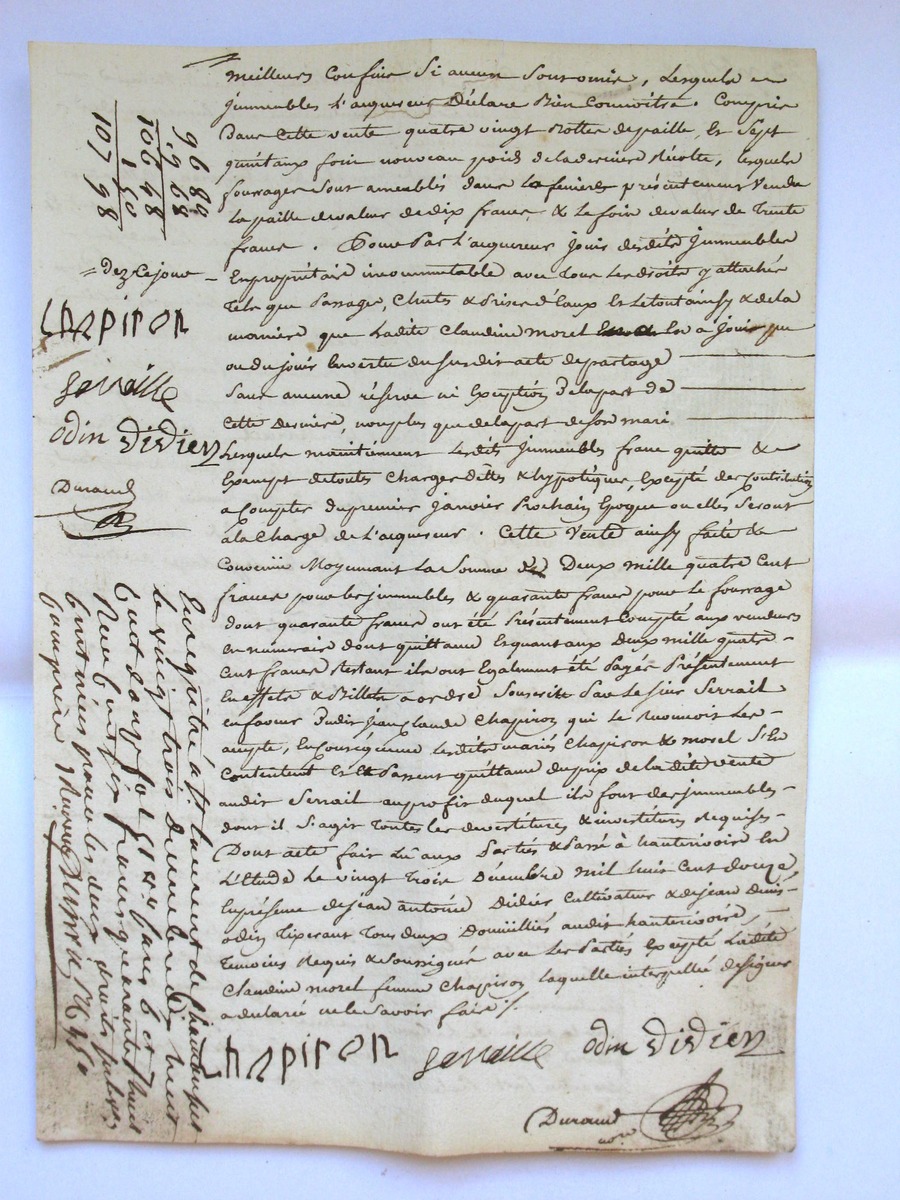 meilleurs confins si aucuns sont omis, lesquels
immeubles l'acquereur déclare bien connoitre. Compris
dans cette vente quatre vingt bottes de paille, et sept
quintaux foin nouveau poids de la derniere récolte, lesquels
fourrages sont dans la feniere présentement vendue
la paille de valeur de dix francs & le foin de valeur de trente
francs. Pour par l'acquereur jouir desdits immeubles
en propriétaire incommutable avec tous les droits y attachés
tels que passages, chutes & prises d'eaux et le tout ainsy & de la
maniere que ladite Claudine morel en a joui pu
ou du jouir en vertu du susdit acte de partage
sans aucune réserve ni exception de la part de
cette derniere, non plus que de la part de son mari
lesquels maintiennent lesdits immeubles franc quitte &
exempt de toutes charges dettes & hypotèques, excepté des contributions
a compter du premier janvier prochain époque ou elles seront
a la charge de l'acquereur. Cette vente ainsy faite &
convenüe moyennant la somme de deux mille quatre cent
francs pour les immeubles & quarante francs pour le fourrage
dont quarante francs ont été présentement compté aux vendeurs
en numeraire dont quittance et quant aux deux mille quatre
cent francs restant ils ont egalement été payés présentement
en effets & billets a ordre souscrits par le sieur Serrail
en faveur dudit jean claude Chapiron qui le reconnoit
accepte, en conséquence lesdits mariés Chapiron & morel s'en
contentent et passent quittance du prix de ladite vente
audit Serrail au profit duquel ils font des immeubles
dont il s'agit toutes les devestitures & investitures requises
Dont acte fait lû aux parties & passé à hauterivoire en
l'étude le vingt trois décembre mil huit cent douze
en présence de jean antoine didier cultivateur & de jean denis
odin tixerant tous deux domiciliés audit hauterivoire,
temoins requis & soussignés avec les parties excepté ladite
Claudine morel femme Chapiron laquelle interpellée de signer
a declaré ne le savoir faire /.
Chapiron Serraille odin didier
Durand
nore
96 80
9 68
106 48
1 50
107 98
= Dez ce jour
Chapiron
Serraille
odin didier
Durand
Enregistré a St laurent de Chamousset
le vingt trois decembre dix huit
cent douze fol 51
Reçu cent six francs quarante huit
centimes pour les deux droits subven
comprise